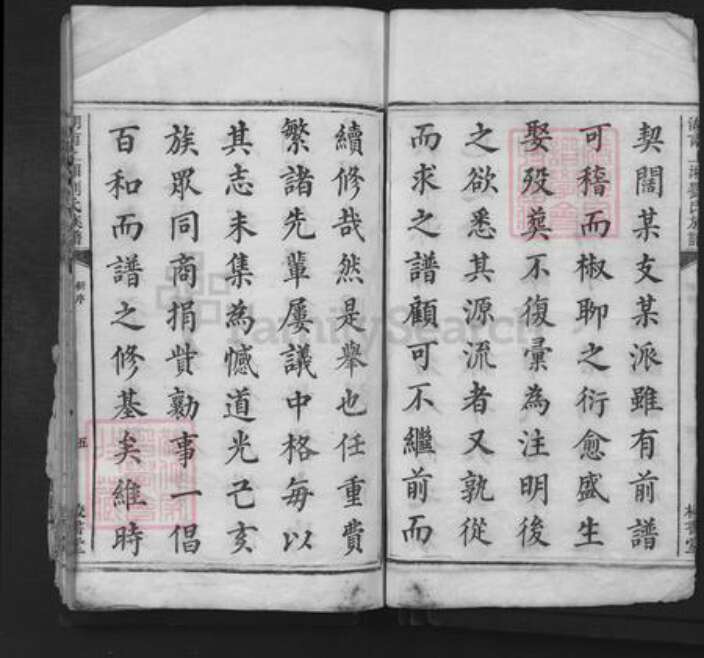 契闊某支某派雖有前譜
可稽而椒聊之衍愈盛生
娶歿葬不復彙為注明後
之欲悉其源流者又孰從
而求之譜顧可不繼前而
續修哉然是舉也任重費
繁諸先輩屢議中格每以
其志未集為憾道光己亥
族眾同商捐貲勷事一倡
百和而譜之修基矣維時
五
FamilySearch